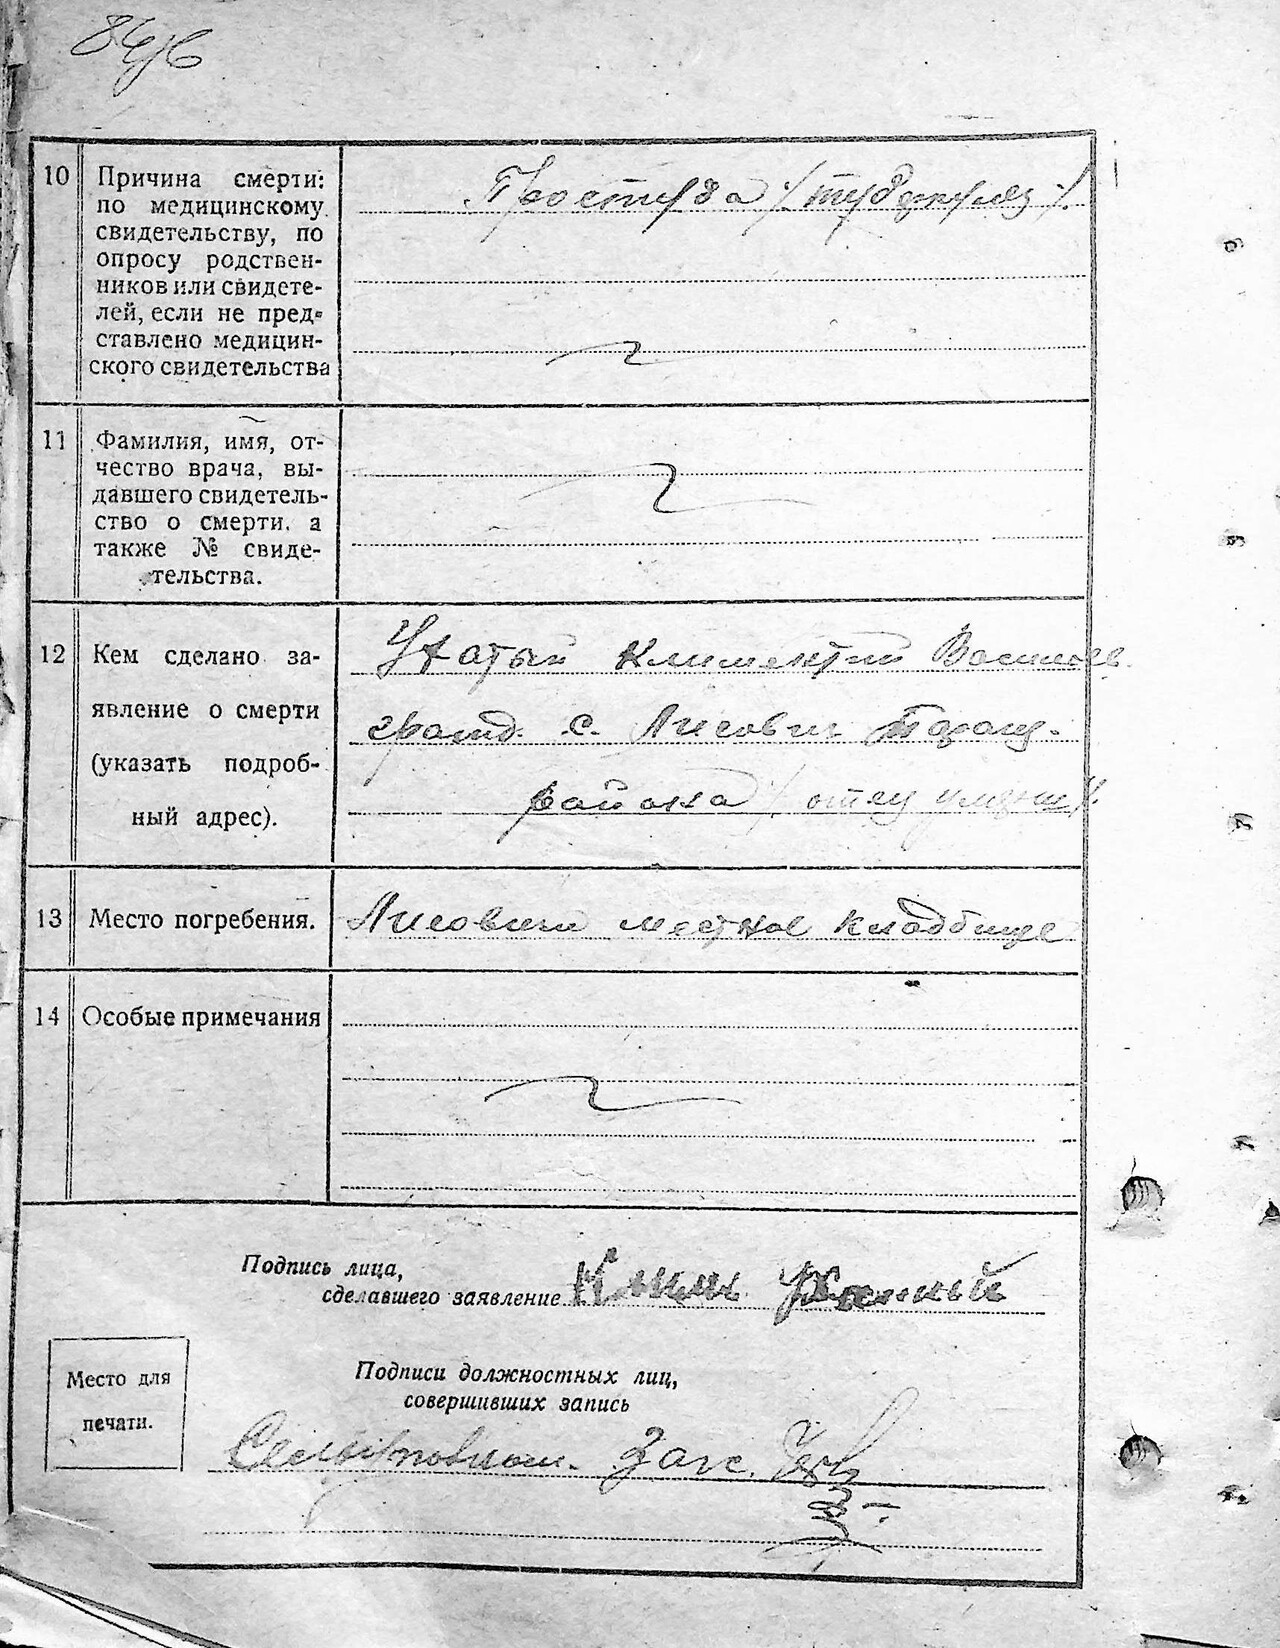 10 Причина смерти:
по медицинскому
свидетельству, по
опросу родствен-
ников или свидете-
лей, если не пред-
ставлено медицин-
ского свидетельства
Простуда /туберкулез/.
11 Фамилия, имя, от-
чество врача, вы-
давшего свидетель-
ство о смерти, а
также № свиде-
тельства.
12 Кем сделано за-
явление о смерти
(указать подроб-
ный адрес).
Климентий Васильев.
гражд. с. Лисовичи Таращ.
района /отец
13 Место погребения.
Лисовичи местное кладбище
14 Особые примечания
Подпись лица,
сделавшего заявление
Место для
печати.
Подписи должностных лиц,
совершивших запись
Загс.